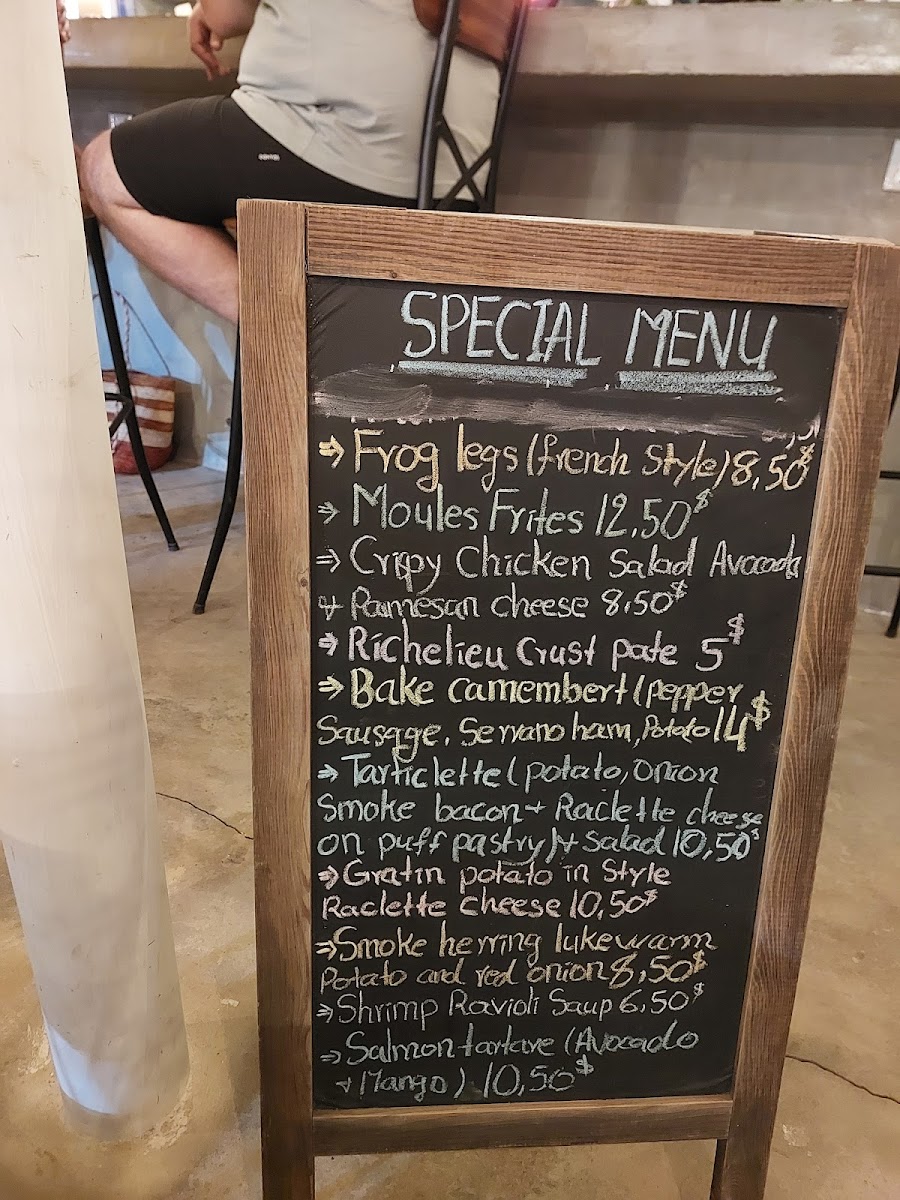 SPECIAL MENU
⇒ Frog legs (french style) 8,50$
⇒ Moules Frites 12,50$
⇒ Crispy Chicken Salad Avocada
+ Parmesan cheese 8.50$
⇒ Richelieu Crust pate 5$
⇒ Bake camembert (pepper
Sausage, Serrano ham, Potato 14$
⇒ Tarticlette (potato, onion
Smoke bacon + Raclette cheese
on puff pastry) + Salad 10,50$
⇒ Gratin potato in Style
Raclette cheese 10,50$
⇒ Smoke herring lukewarm
Potato and red onion 8,50$
⇒ Shrimp Ravioli Saup 6.50$
⇒ Salmon tartare (Avocado
+ Mango) 10,50$